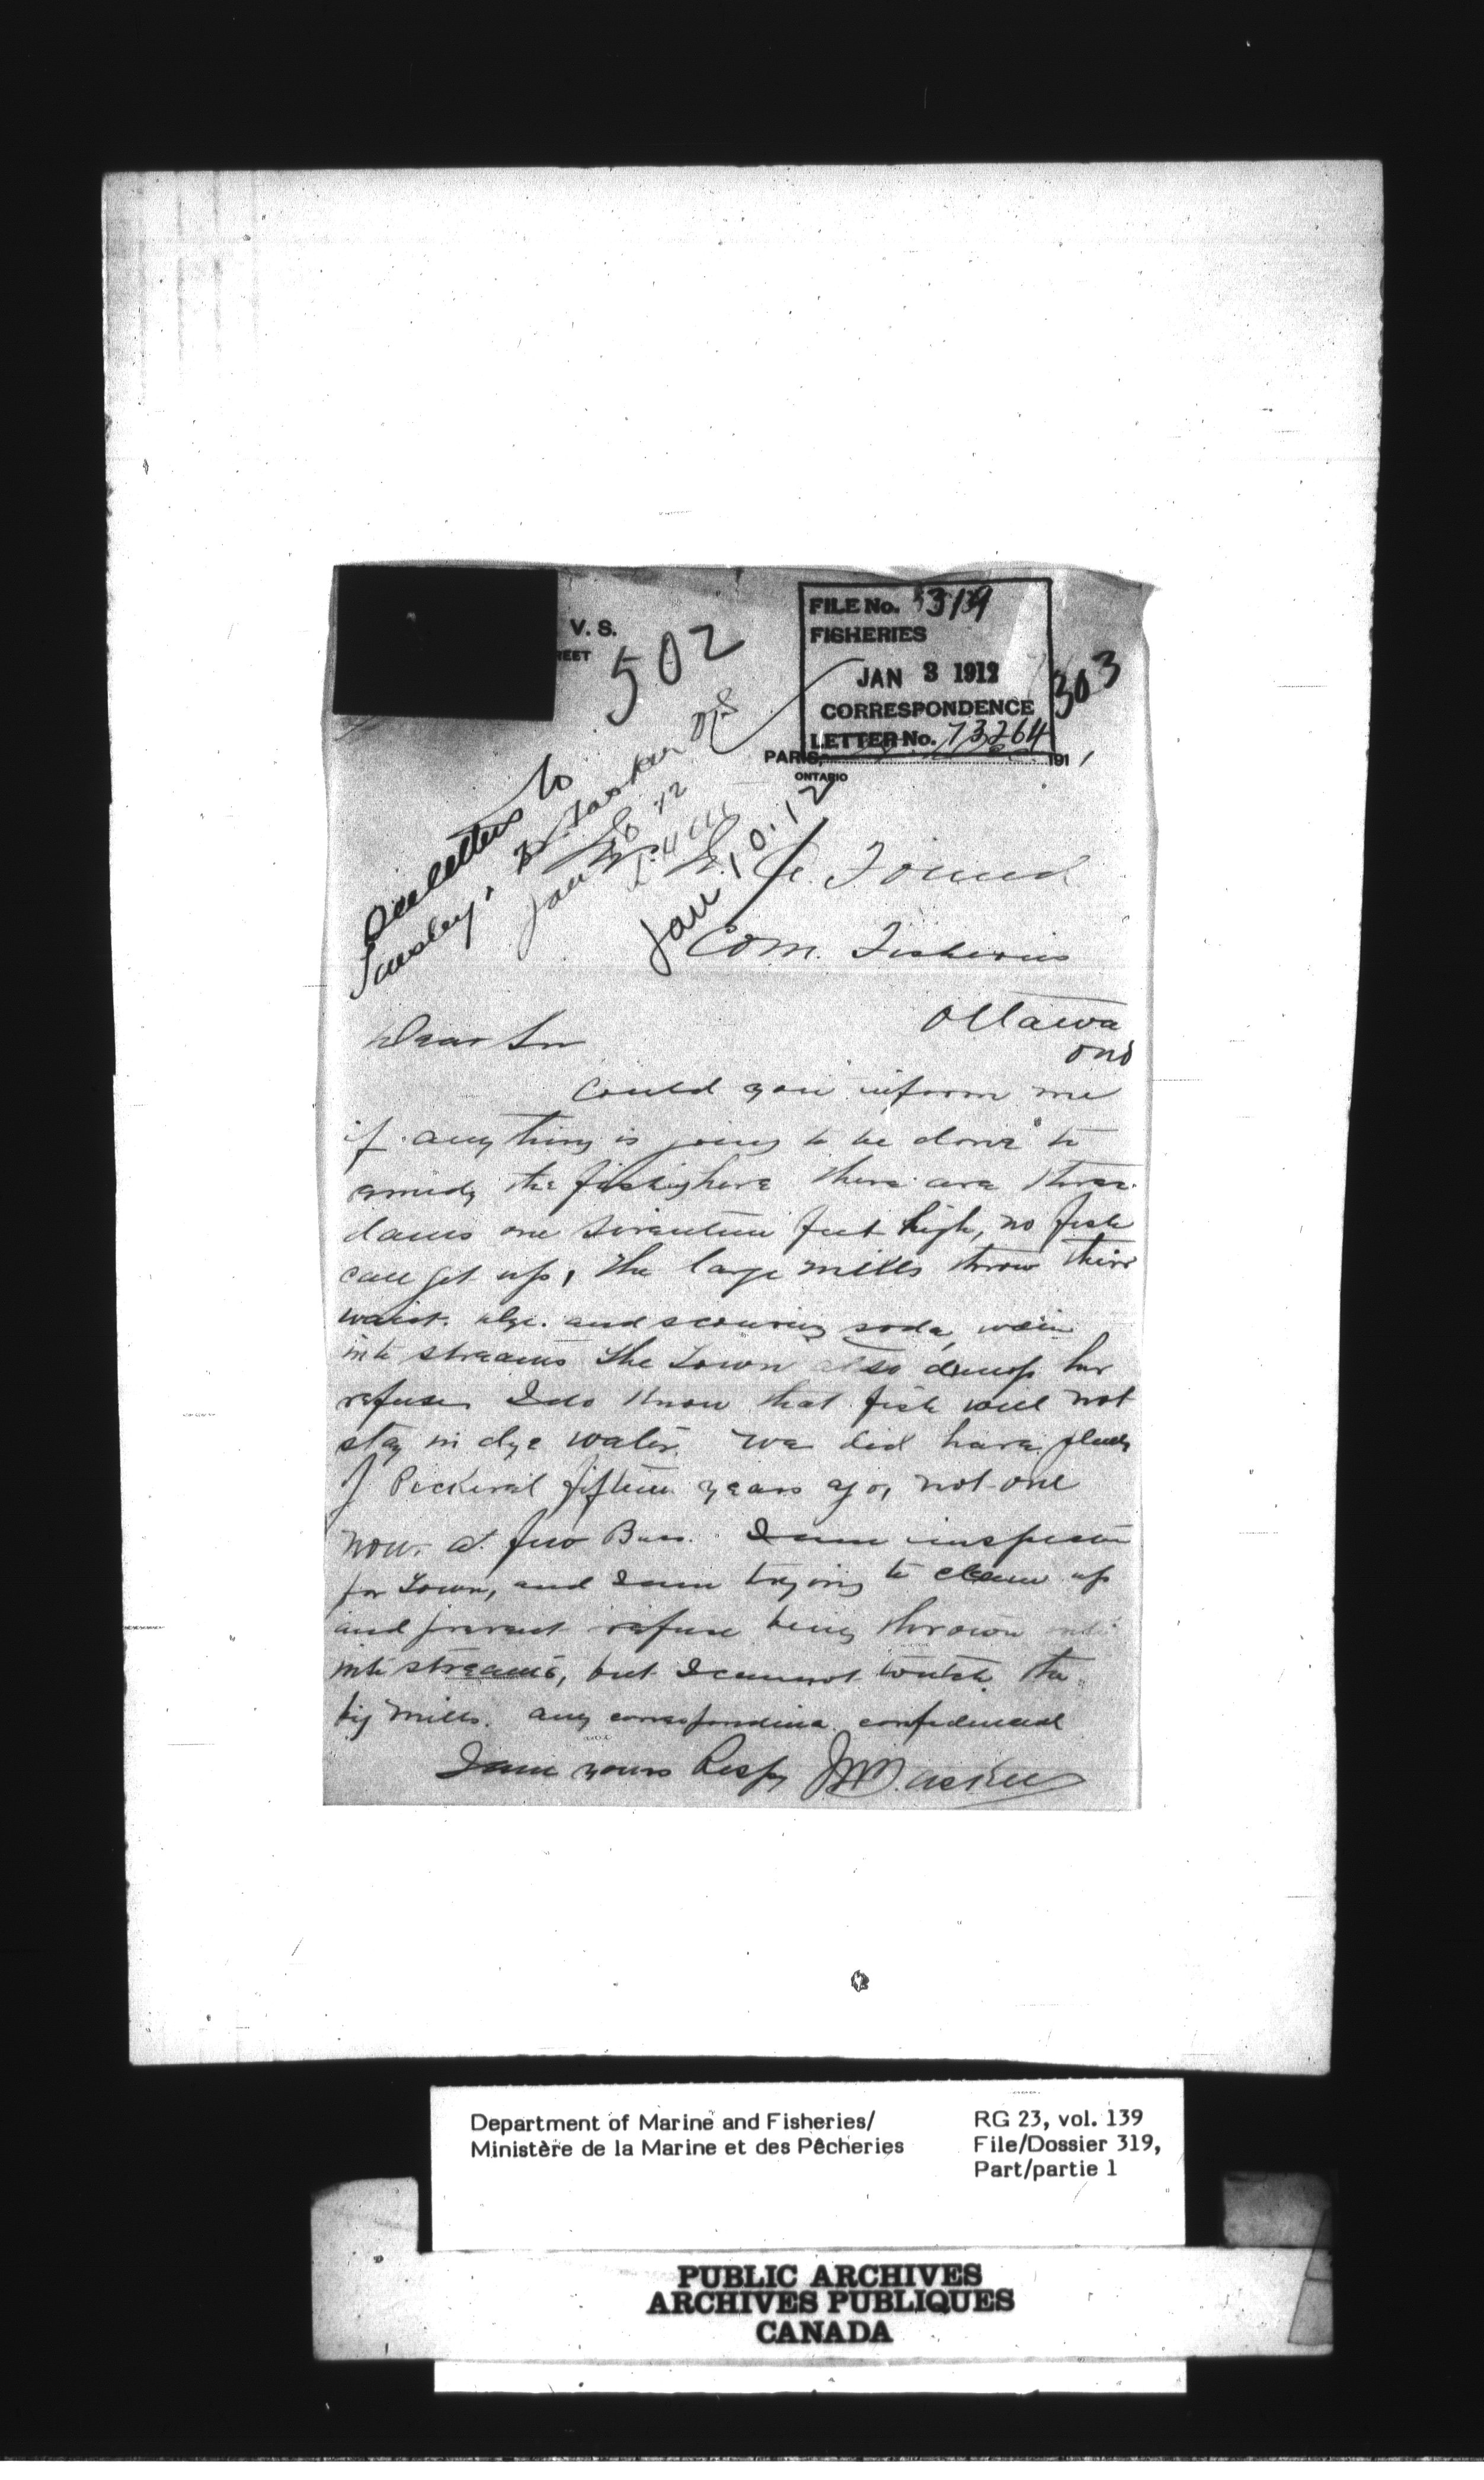 V. S.
EET
502
FILE No. 3139
FISHERIES
JAN 3 1912
CORRESPONDENCE
LETTER No. 73264
303
PARIS, 191 1
ONTARIO
See letters to
Jan. 10. 12
Com. Fisheries
Ottawa
Ont
Dear Sir
Could you inform me
if any thing is going to be done to
the fishing here there are three
dams one seventeen feet high, no fish
can get up, The large mills throw their
waist. dye. and scouring soda,
into streams The Town also dump her
refuse I do know that fish will not
stay in dye water. We did have plenty
of Pickeral fifteen years ago, not one
now. a few Bass. I am inspector
for Town, and I am trying to clean up
and prevent refuse being thrown
into streams, but I cannot touch the
big mills. any correspondence confidencial
I am yours Respy
Department of Marine and Fisheries/
Ministère de la Marine et des Pêcheries
RG 23, vol. 139
File/Dossier 319,
Part/partie 1
PUBLIC ARCHIVES
ARCHIVES PUBLIQUES
CANADA